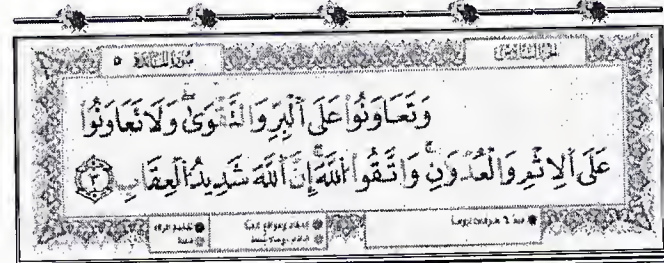 سورة المائدة ٥
الجزء السادس
وَتَعَاوَنُوا۟ عَلَى ٱلْبِرِّ وَٱلتَّقْوَىٰ ۖ وَلَا تَعَاوَنُوا۟
عَلَى ٱلْإِثْمِ وَٱلْعُدْوَٰنِ ۚ وَٱتَّقُوا۟ ٱللَّهَ ۖ إِنَّ ٱللَّهَ شَدِيدُ ٱلْعِقَابِ ٣